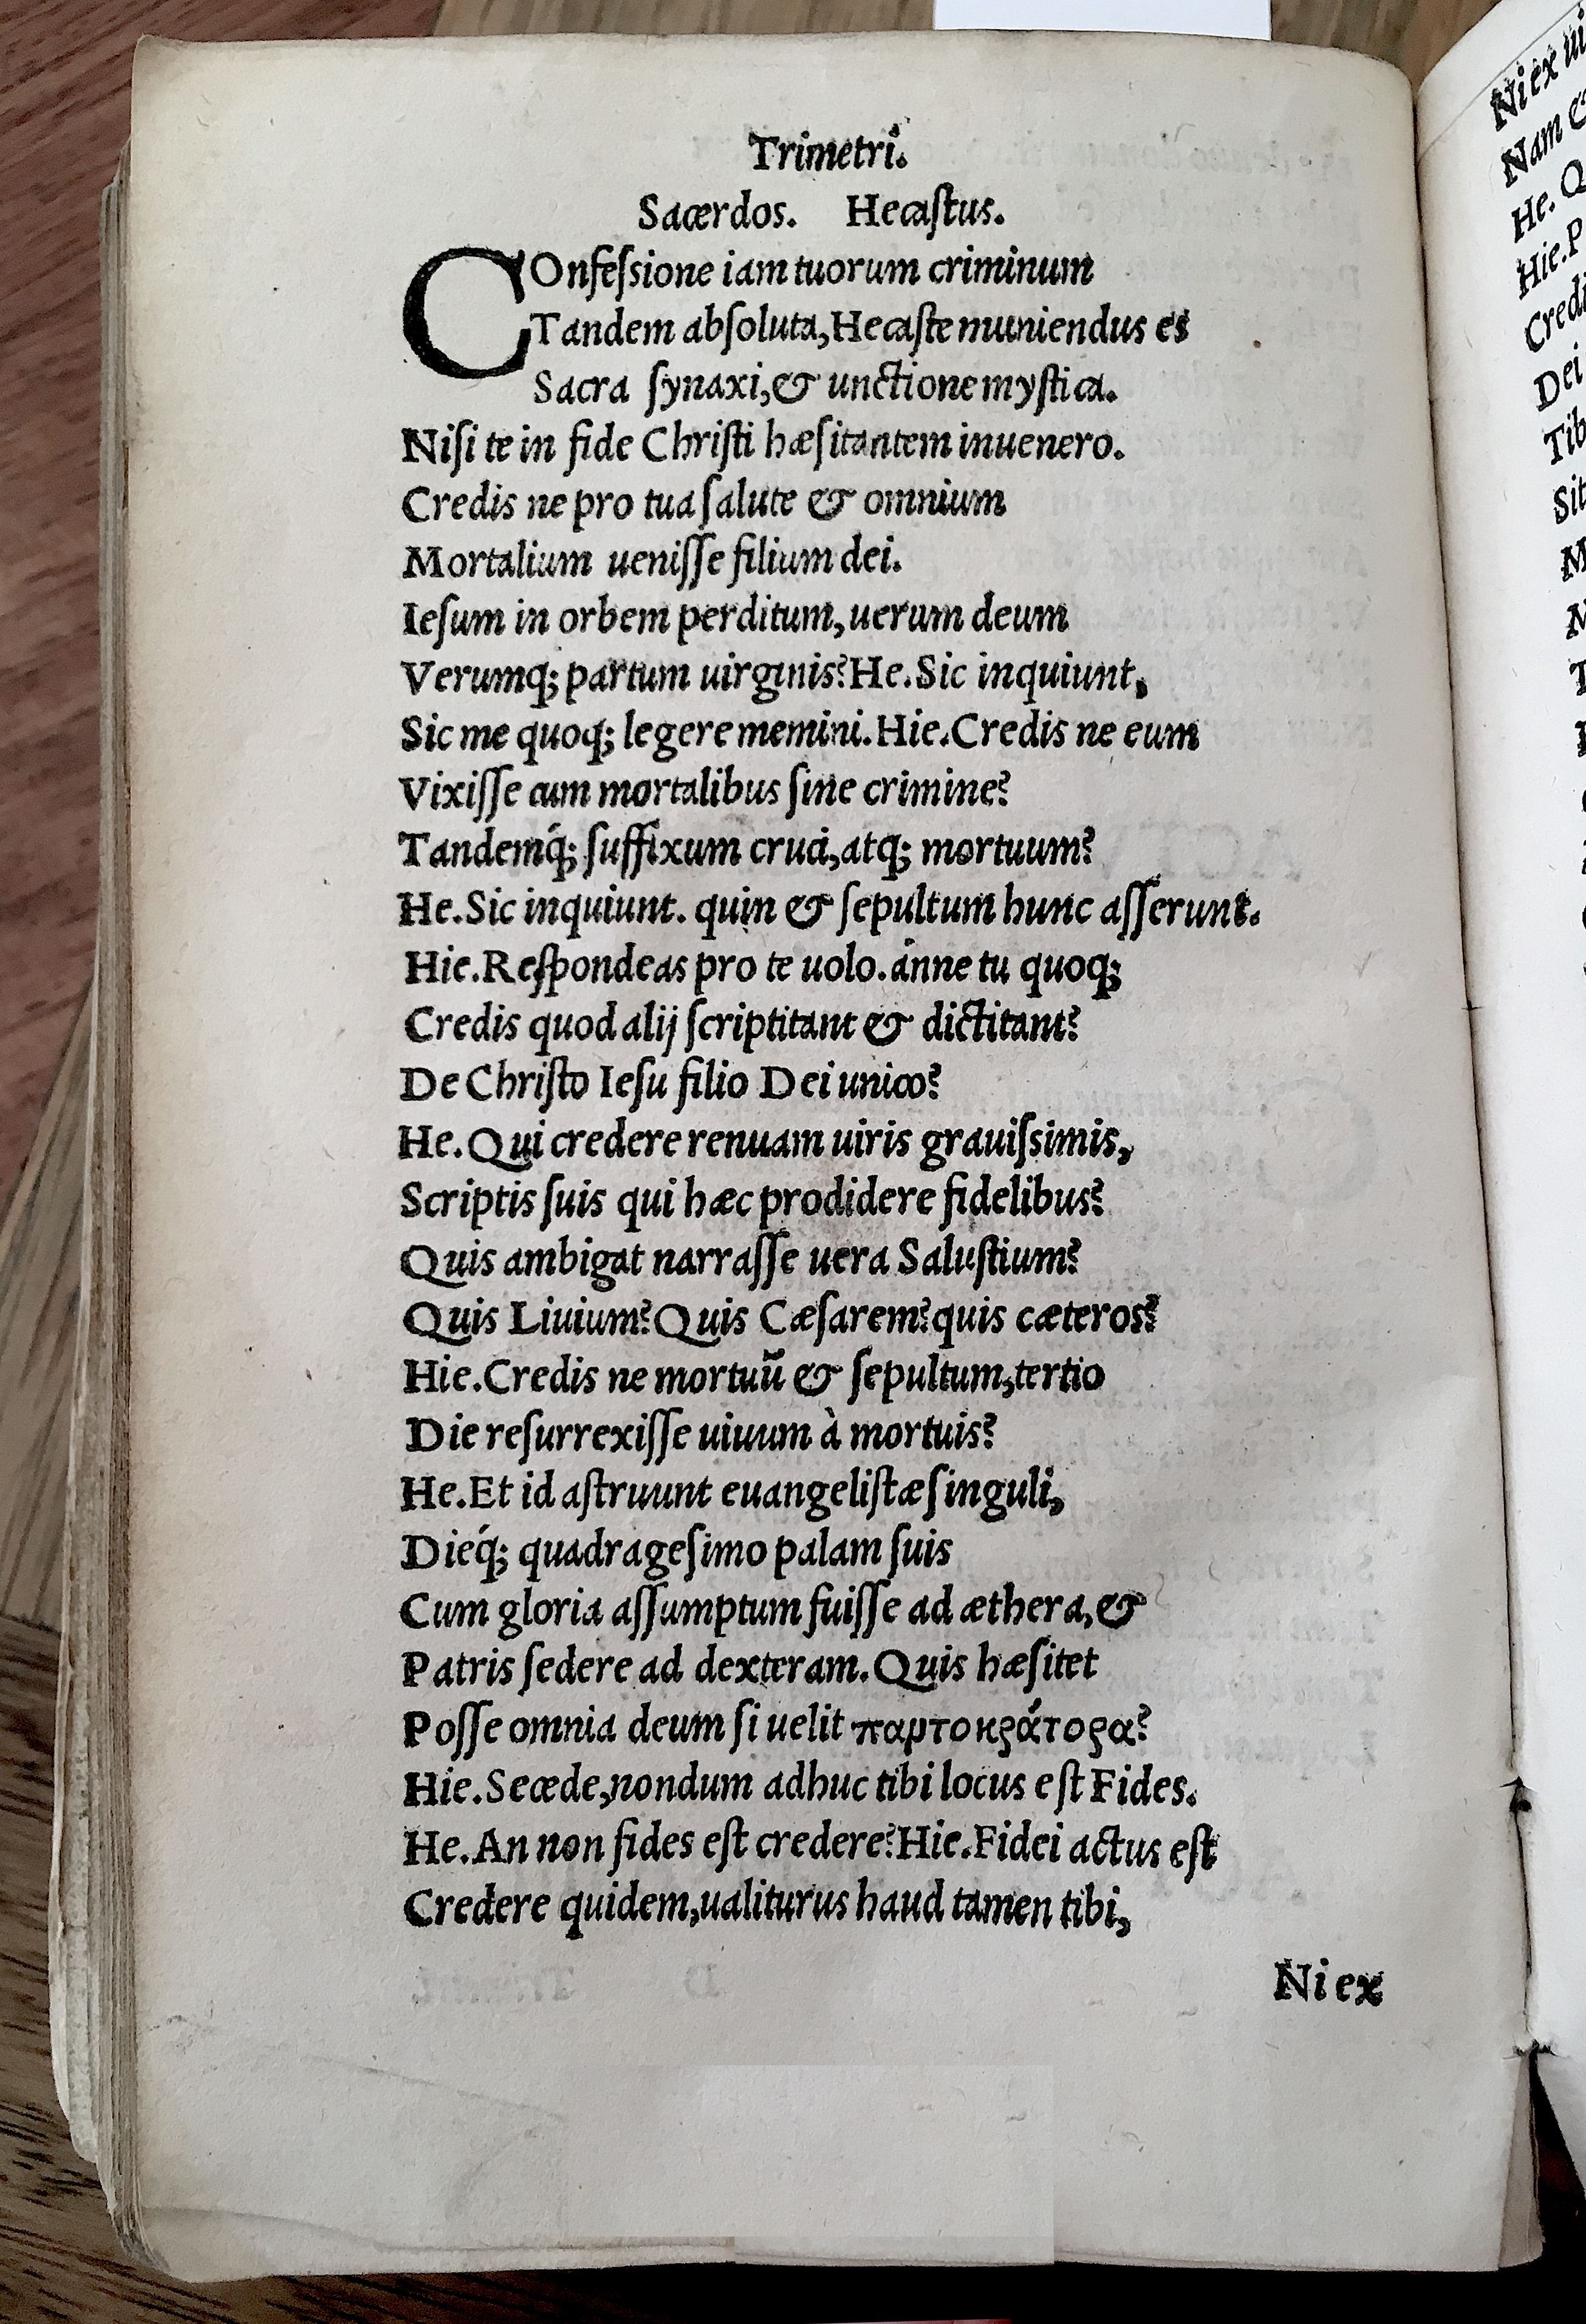 Trimetri.
Sacerdos. Hecaſtus.
COnfeſsione iam tuorum criminum
Tandem abſoluta, Hecaſte muniendus es
Sacra ſynaxi, & unctione myſtica.
Niſi te in fide Chriſti hæſitantem inuenero.
Credis ne pro tua ſalute & omnium
Mortalium ueniſſe filium dei.
Ieſum in orbem perditum, uerum deum
Verumq; partum uirginis? He. Sic inquiunt,
Sic me quoq; legere memini. Hie. Credis ne eum
Vixiſſe cum mortalibus ſine crimine?
Tandemq́; ſuffixum cruci, atq; mortuum?
He. Sic inquiunt. quin & ſepultum hunc aſſerunt.
Hie. Reſpondeas pro te uolo. ánne tu quoq;
Credis quod alij ſcriptitant & dictitant?
De Chriſto Ieſu filio Dei unico?
He. Qui credere renuam uiris grauiſsimis,
Scriptis ſuis qui hæc prodidere fidelibus?
Quis ambigat narraſſe uera Saluſtium?
Quis Liuium? Quis Cæſarem? quis cæteros?
Hie. Credis ne mortuũ & ſepultum, tertio
Die reſurrexiſſe uiuum à mortuis?
He. Et id aſtruunt euangeliſtæ ſinguli,
Dieq́; quadrageſimo palam ſuis
Cum gloria aſſumptum fuiſſe ad æthera, &
Patris ſedere ad dexteram. Quis hæſitet
Poſſe omnia deum ſi uelit παρτοκράτορα?
Hie. Secede, nondum adhuc tibi locus eſt Fides.
He. An non fides eſt credere? Hie. Fidei actus eſt
Credere quidem, ualiturus haud tamen tibi,
Ni ex
Ni ex
Nam
He. Q
Hie. P
Credi
Dei
Tib
Sit